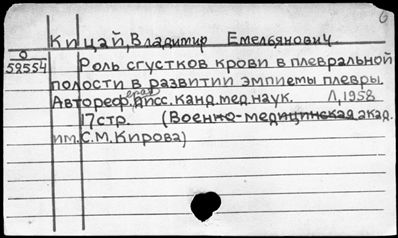 6
Кицай, Владимир Емельянович.
0
59554
Роль сгустков крови в плевральной
полости в развитии эмпиемы плевры.
Автореферат дисс. канд. мед. наук. Л, 1958
17 стр. (Военно-медицинская акад.
им. С. М. Кирова)